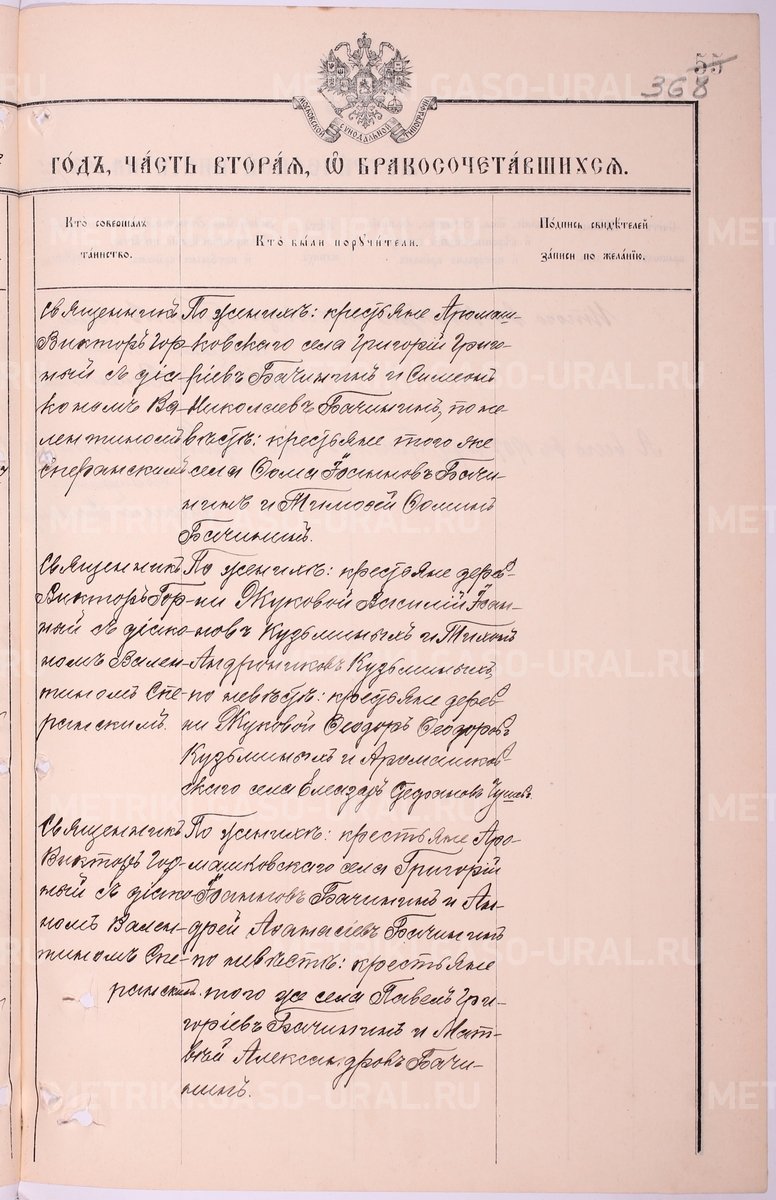 55
368
МОСКОВСКОЙ СѴНОДАЛЬНОЙ ТИПОГРАФІИ
ГОДЪ, ЧАСТЬ ВТОРАЯ, Ѡ БРАКОСОЧЕТАВШИХСЯ.
Кто совершалъ таинство.
Кто были поручители.
Подпись свидѣтелей записи по желанію.
Священникъ
Викторъ Гор-
ный съ діа-
кономъ Ва-
лентиномъ
Сперанскимъ
По женихѣ: крестьяне Арамаш-
ковскаго села Григорій Григо-
ріевъ Бачининъ и Симеонъ
Николаевъ Бачининъ, по не-
вѣстѣ: крестьяне того же
села Ѳома Іоанновъ Бачи-
нинъ и Тимоѳей Ѳоминъ
Бачининъ.
Священникъ
Викторъ Гор-
ный съ діако-
номъ Вален-
тиномъ Спе-
ранскимъ.
По женихѣ: крестьяне дерев-
ни Жуковой Василій Іоан-
новъ Кузьминыхъ и Тихонъ
Андрониковъ Кузьминыхъ,
по невѣстѣ: крестьяне дерев-
ни Жуковой Ѳеодоръ Ѳеодоровъ
Кузьминыхъ и Арамашков-
скаго села Елеазаръ Стефановъ
Священникъ
Викторъ Гор-
ный съ діако-
номъ Вален-
тиномъ Спе-
ранскимъ.
По женихѣ: крестьяне Ара-
машковскаго села Григорій
Іоанновъ Бачининъ и Ан-
дрей Аѳанасіевъ Бачининъ
по невѣстѣ: крестьяне
того же села Павелъ Гри-
горіевъ Бачининъ и Мат-
вѣй Александровъ Бачи-
нинъ.
METRIKI.GASO-URAL.RU